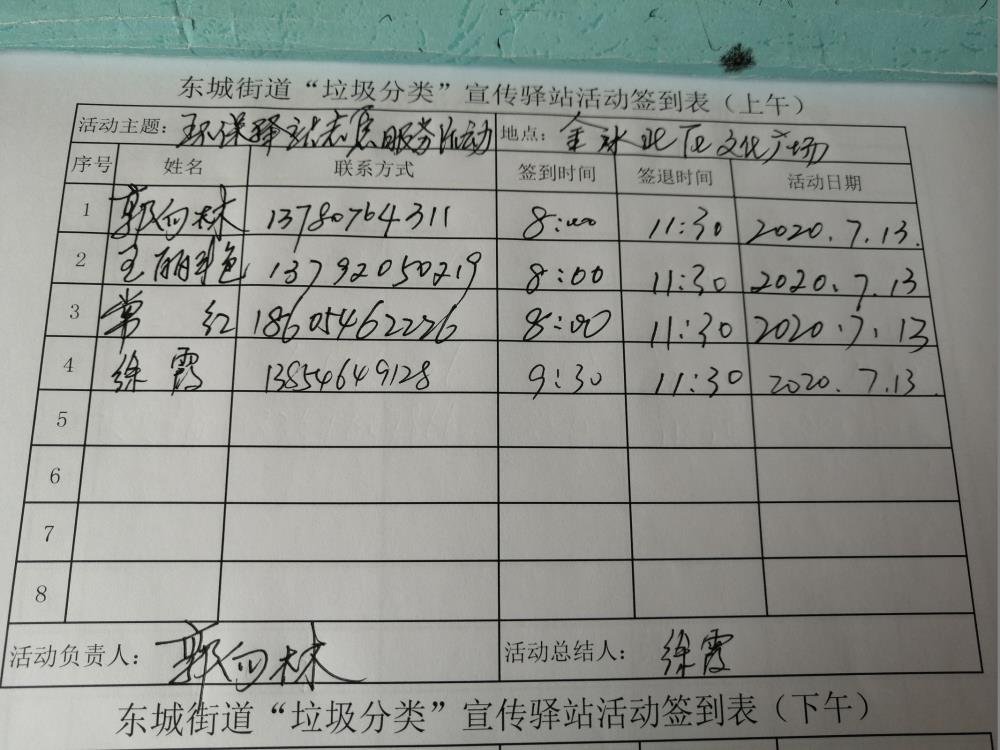 东城街道“垃圾分类”宣传驿站活动签到表（上午）
活动主题：环保驿站志愿服务活动 地点：金水北区文化广场
序号 姓名 联系方式 签到时间 签退时间 活动日期
1 郭向林 13780764311 8:00 11:30 2020.7.13.
2 王丽艳 13792050219 8:00 11:30 2020.7.13
3 常红 18605462226 8:00 11:30 2020.7.13
4 徐霞 13854649128 9:30 11:30 2020.7.13.
5
6
7
8
活动负责人：郭向林 活动总结人：徐霞
东城街道“垃圾分类”宣传驿站活动签到表（下午）